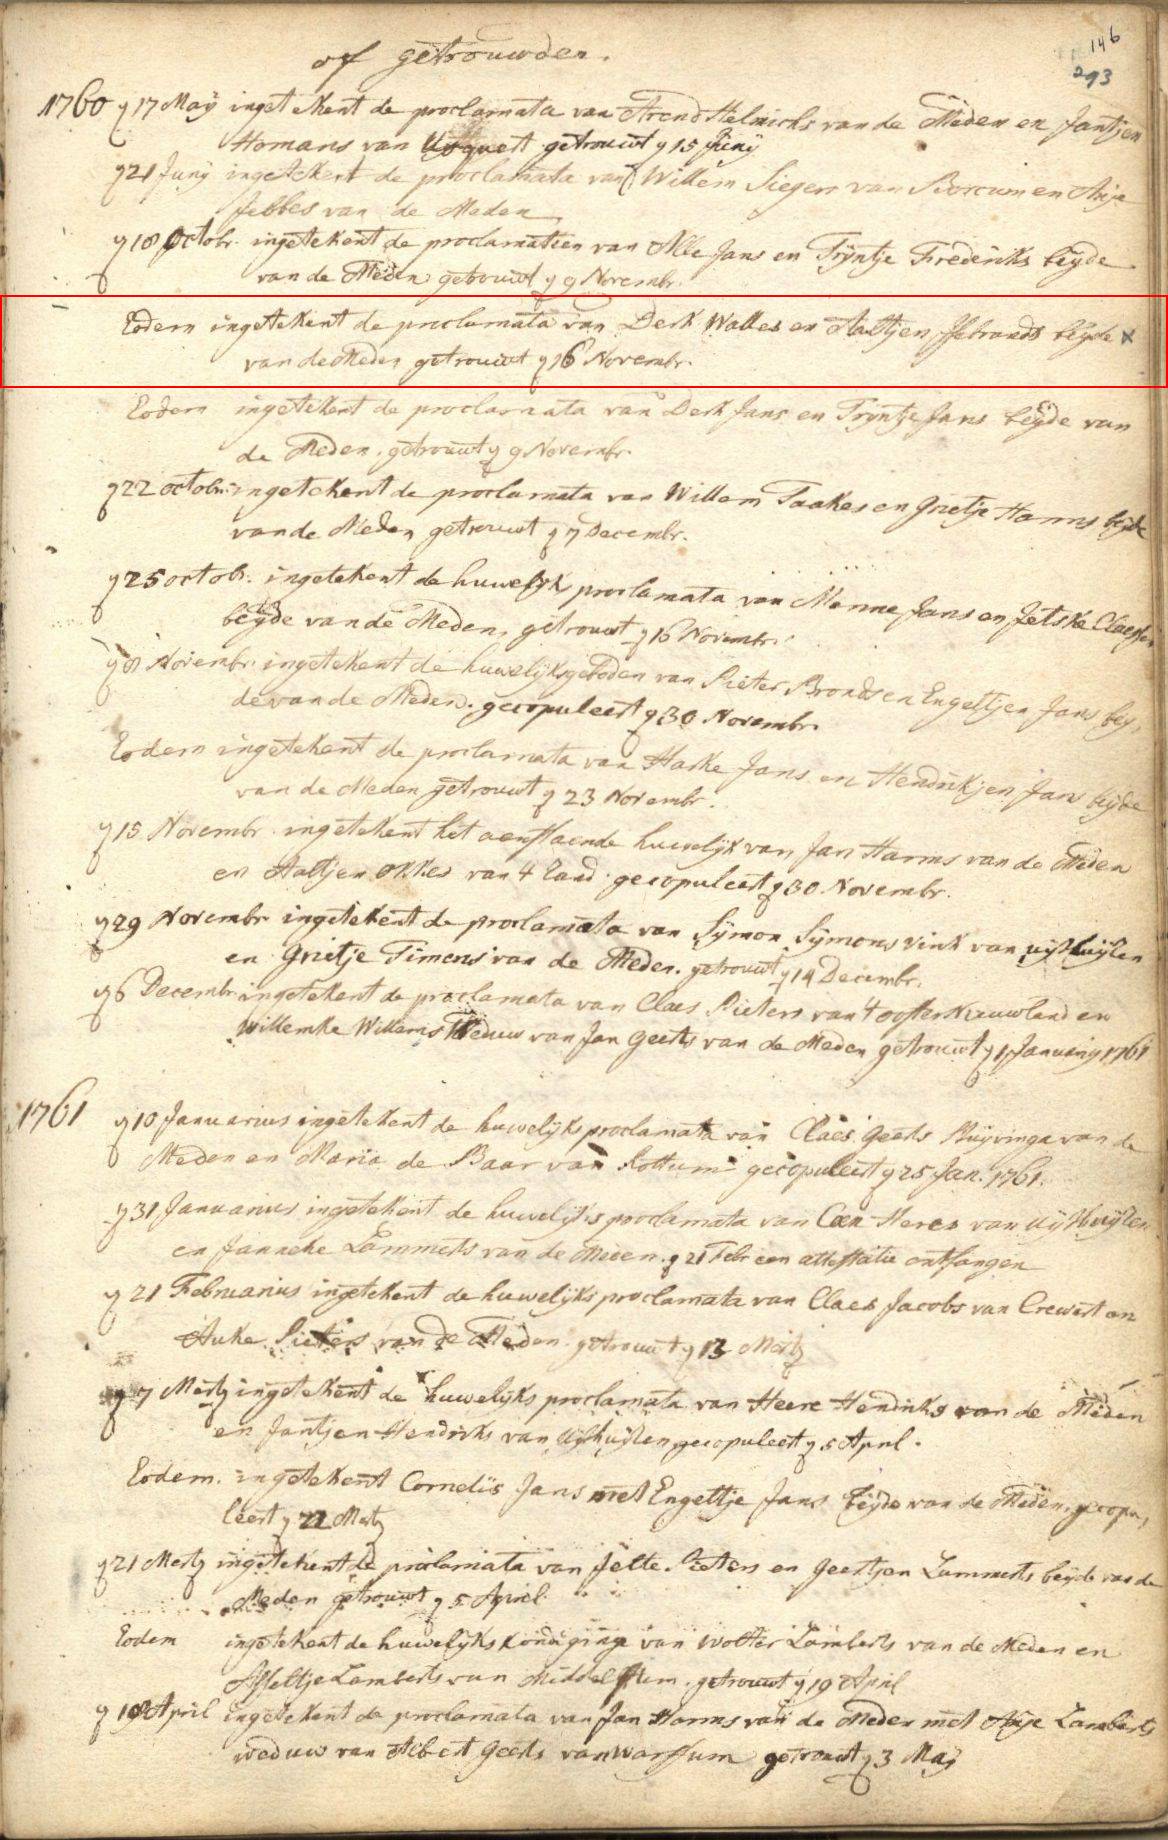 of getrouwden.
146
293
1760 y 17 Maÿ ingetekent de proclamata van Arend Helmichs van de Meden en Jantjen
Homans van getrouwt y 15 Junÿ
y 21 Junÿ ingetekent de proclamata van Willem Siegers van Borcum en Anje
Jebbes van de Meden
y 18 Octobr. ingetekent de proclamatien van Alle Jans en Trÿntje Frederiks beÿde
van de Meden getrouwt y 9 Novembr.
Eodem ingetekent de proclamata van Derk Walles en Aaltjen Ysebrands beÿde x
van de Meden getrouwt y 16 Novembr.
Eodem ingetekent de proclamata van Derk Jans en Trÿntje Jans beÿde van
de Meden. getrouwt y 9 Novembr.
y 22 octobr. ingetekent de proclamata van Willem Taakes en Grietje Harms beÿde
van de Meden getrouwt y 7 Decembr.
y 25 octobr. ingetekent de huwelÿk proclamata van Menne Jans en Jetske Claessen
beÿde van de Meden, getrouwt y 16 Novembr.
y 8 Novembr. ingetekent de huwelÿksgeboden van Pieter Bronds en Engeltjen Jans beÿ,
de van de Meden. gecopuleert y 30 Novembr.
Eodem ingetekent de proclamata van Harke Jans en Hendrikjen Jans beÿde
van de Meden getrouwt y 23 Novembr.
y 15 Novembr. ingetekent het aenstaende huwelÿk van Jan Harms van de Meden
en Aaltjen Okkes van 't Zand. gecopuleert y 30 Novembr.
y 29 Novembr ingetekent de proclamata van Sÿmon Sÿmons Vink van uÿthuÿsen
en Grietje Timens van de Meden. getrouwt y 14 Decembr.
y 6 Decembr ingetekent de proclamata van Claes Pieters van 't oosternieuwland en
Willemke Willems Weduw van Jan Geerts van de Meden getrouwt y 1 Januarÿ 1761
1761 y 10 Januarius ingetekent de huwelÿks proclamata van Claes Geerts Huÿzinga van de
Meden en Maria de Baar van Rottum gecopuleert y 25 Jan. 1761.
y 31 Januarius ingetekent de huwelÿks proclamata van Coen Heres van uÿthuÿsen
en Janneke Lammerts van de Meden. y 21 Febr een attestatie ontfangen
y 21 Februarius ingetekent de huwelÿks proclamata van Claes Jacobs van Crewert en
Auke Pieters van de Meden. getrouwt y 13 Mertz
y 7 Mertz ingetekent de huwelÿks proclamata van Heere Hendriks van de Meden
en Jantjen Hendriks van Uÿthuÿsen gecopuleert y 5 April.
Eodem. ingetekent Cornelis Jans met Engeltje Jans beÿde van de Meden. gecopu,
leert y 22 Mertz
y 21 Mertz ingetekent de proclamata van Jelte Pieters en Geertjen Lammerts beÿde van de
Meden getrouwt y 5 April
Eodem ingetekent de huwelÿks kondiginge van Wolter Lamberts van de Meden en
Lamberts van Middelstum. getrouwt y 19 April
y 18 April ingetekent de proclamata van Jan Harms van de Meden met Anje Lamberts
weduw van Albert Geerts van Warffum getrouwt y 3 Maÿ